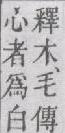 釋木、毛傳
心者爲白